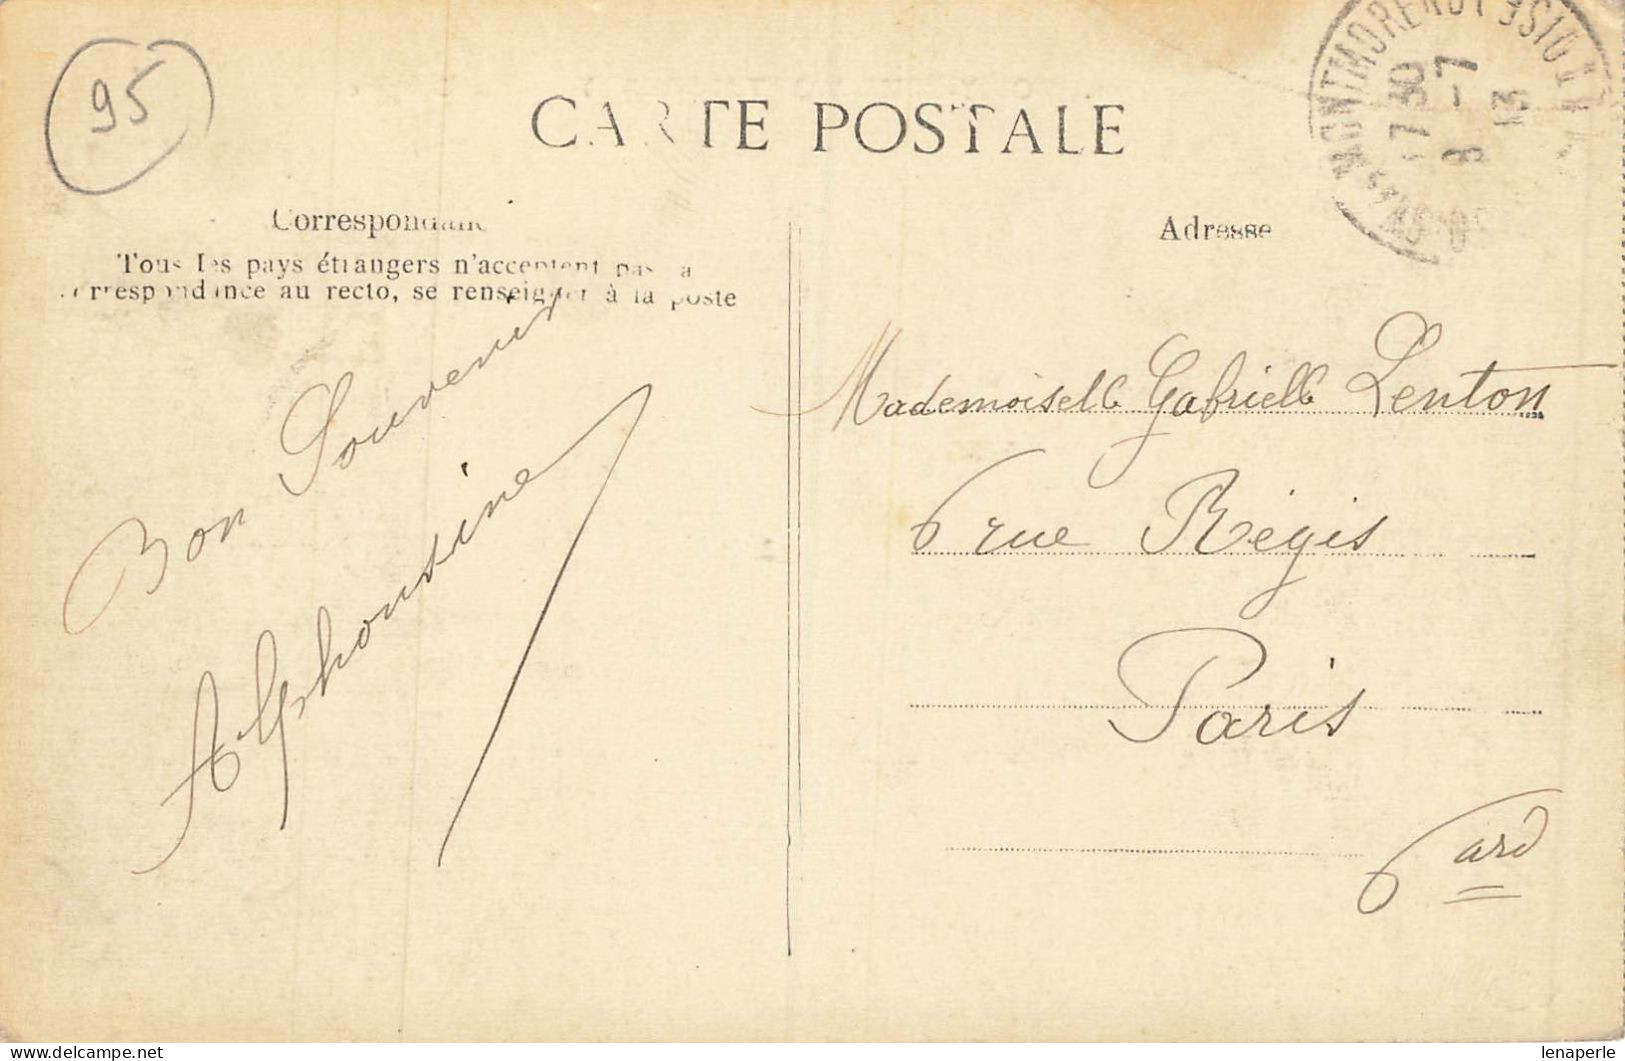 95
CARTE POSTALE
MONTMORENCY SEINE ET OISE
17 30
8 -7
13
Correspondance
Tous les pays étrangers n'acceptent pas la
correspondance au recto, se renseigner à la poste
Bon Souvenir
Alphonsine
Adresse
Mademoiselle Gabrielle Lenton
6 rue Régis
Paris
6 ard
lenaperle